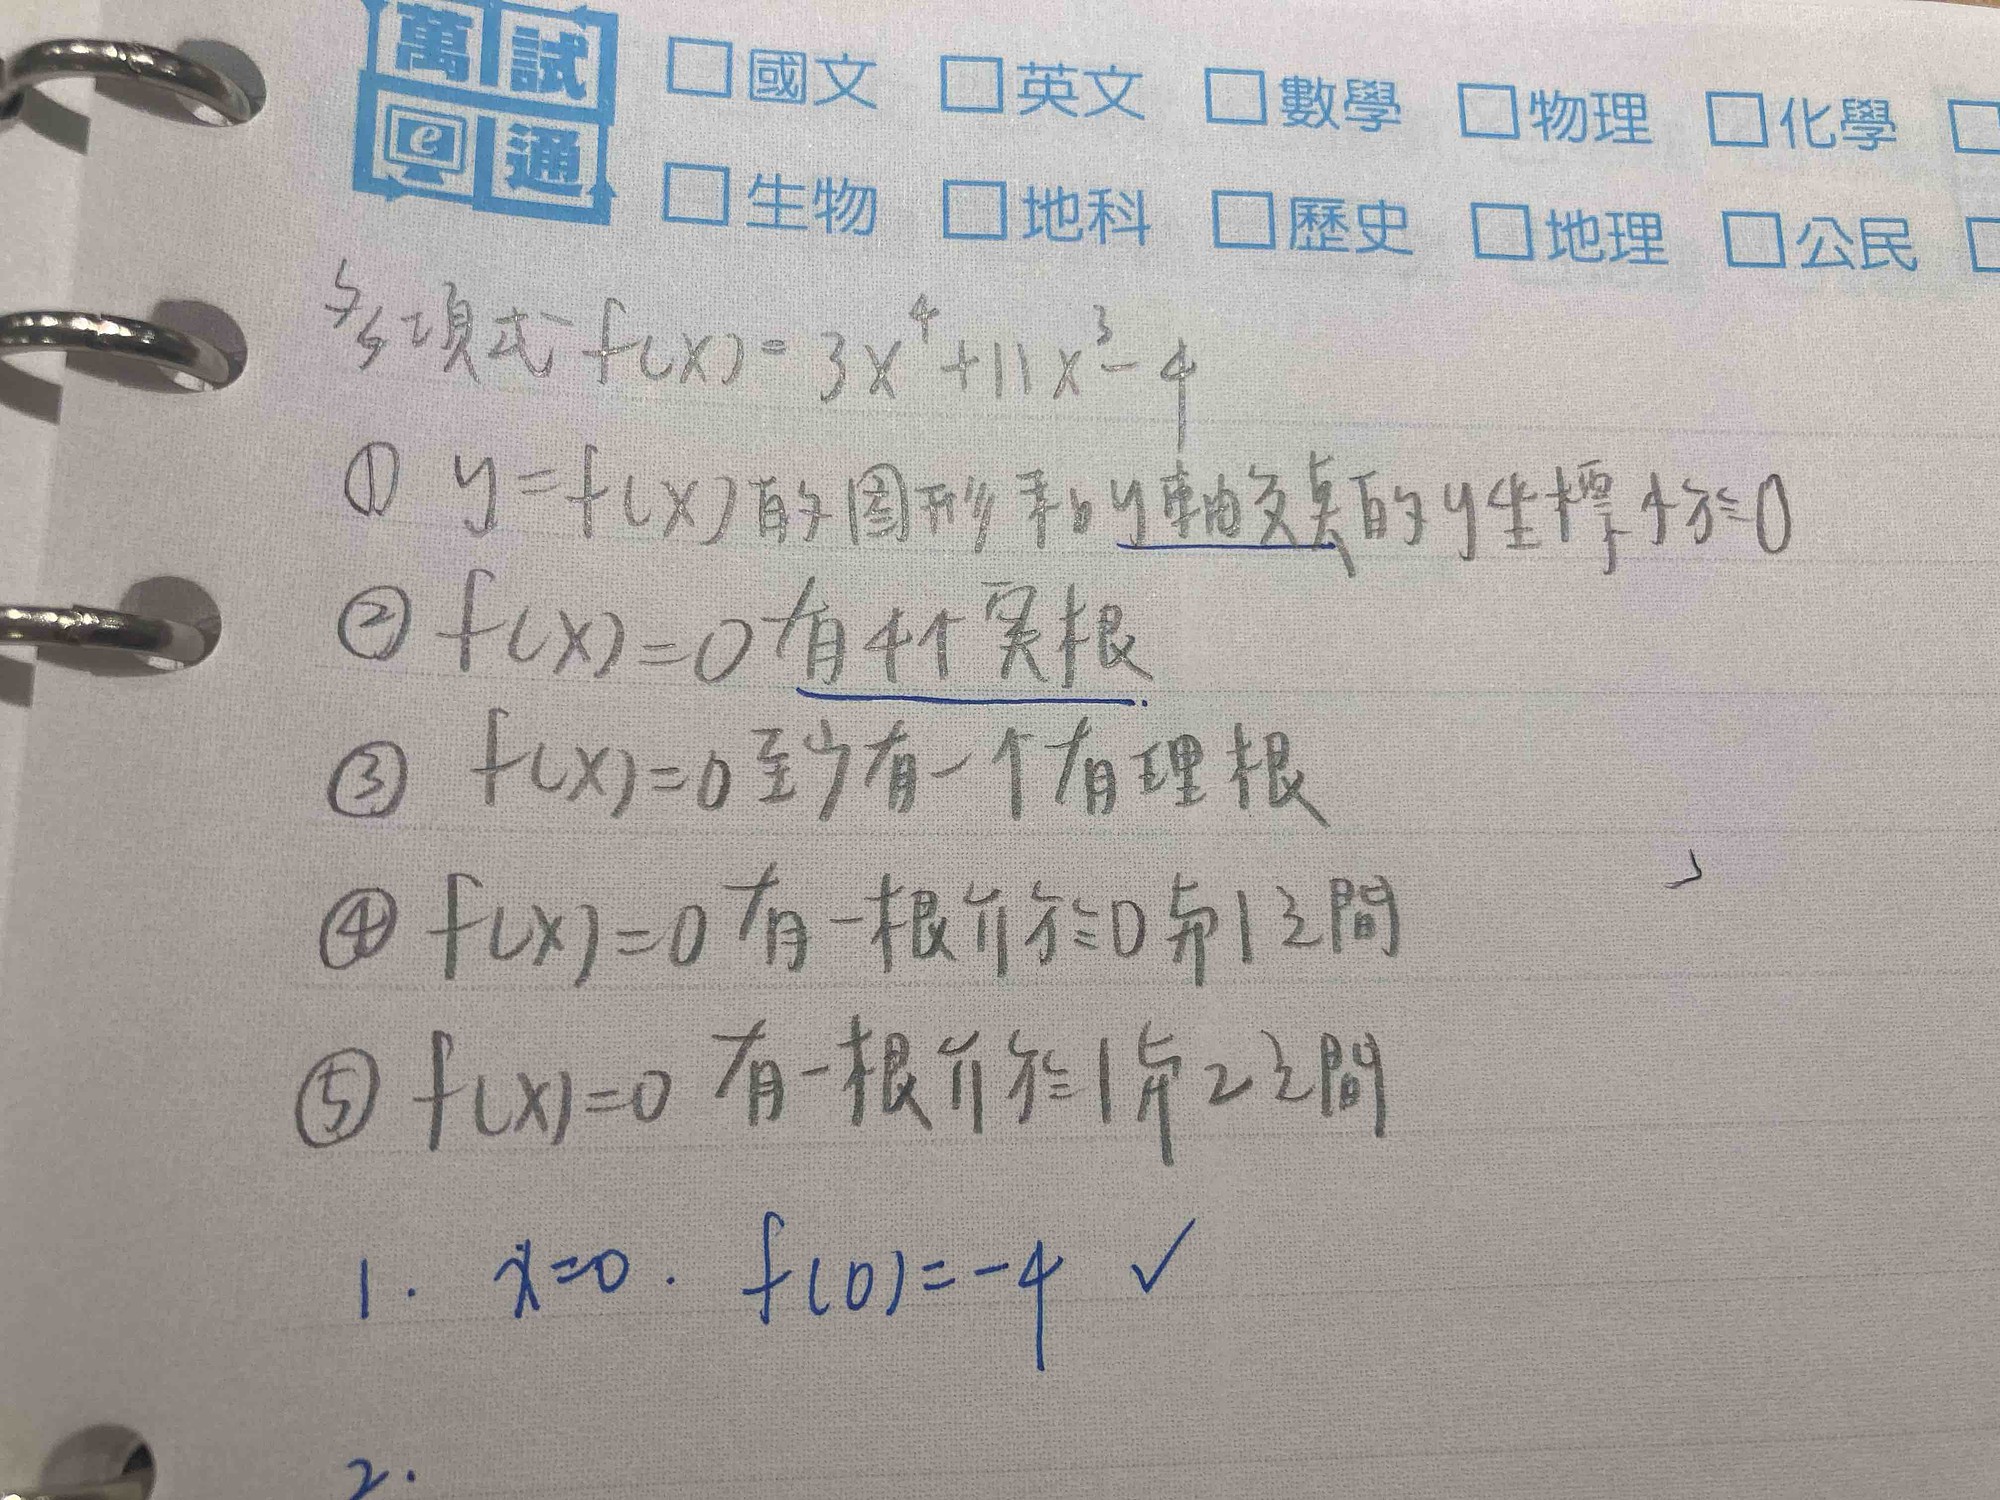 萬試 □國文 □英文 □數學 □物理 □化學 □
e通 □生物 □地科 □歷史 □地理 □公民 □
多項式 f(x) = 3x⁴+11x³-4
① y=f(x)的图形和y軸交点的y坐標小於0
② f(x)=0有4个实根
③ f(x)=0至少有一个有理根
④ f(x)=0有一根介於0與1之間
⑤ f(x)=0 有一根介於1與2之間
1. x=0. f(0)=-4 ✓
2.